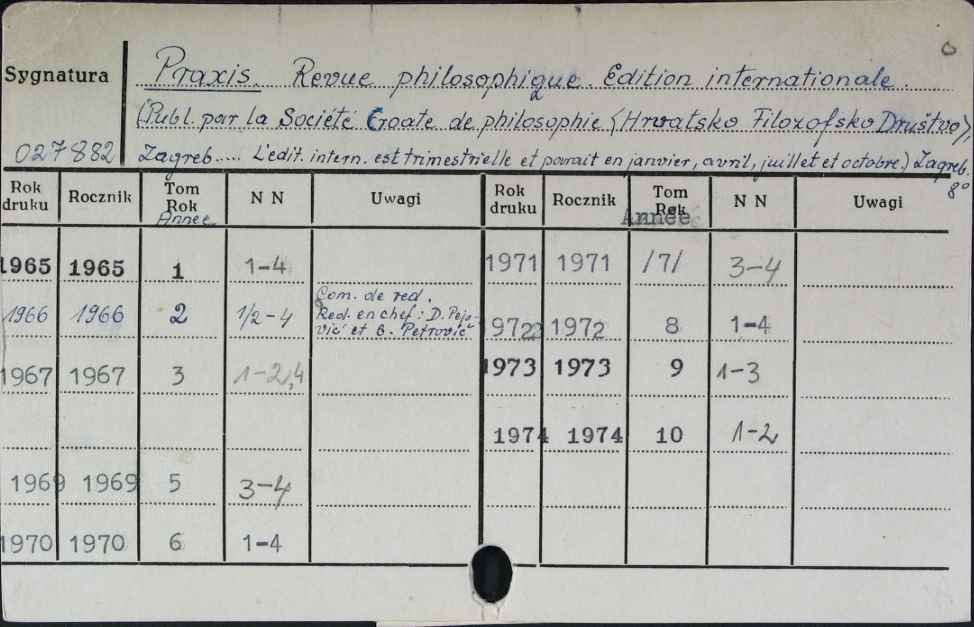 Sygnatura
Praxis. Revue philosophique. Édition internationale.
(Publ. par la Société Croate de philosophie <Hrvatsko Filozofsko Društvo>,
027882
Zagreb..... L'edit. intern. est trimestrielle et parait en janvier, avril, juillet et octobre.) Zagreb.
8°
Rok druku Rocznik Tom Rok Année N N Uwagi Rok druku Rocznik Tom Rok Année N N Uwagi
1965 1965 1 1-4
1966 1966 2 1/2-4 Com. de red. Red. en chef: D. Pejović et G. Petrović
1967 1967 3 1-2,4
1969 1969 5 3-4
1970 1970 6 1-4
1971 1971 /7/ 3-4
1972 1972 8 1-4
1973 1973 9 1-3
1974 1974 10 1-2